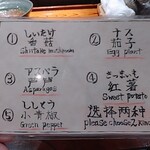 ① しいたけ
香菇
Shiitake mushroom
② ナス
茄子
Egg plant
③ アスパラ
Asparagus
④ さつまいも
红薯
Sweet potato
⑤ ししとう
小青椒
Green pepper
选择两种
please choose 2 kinds